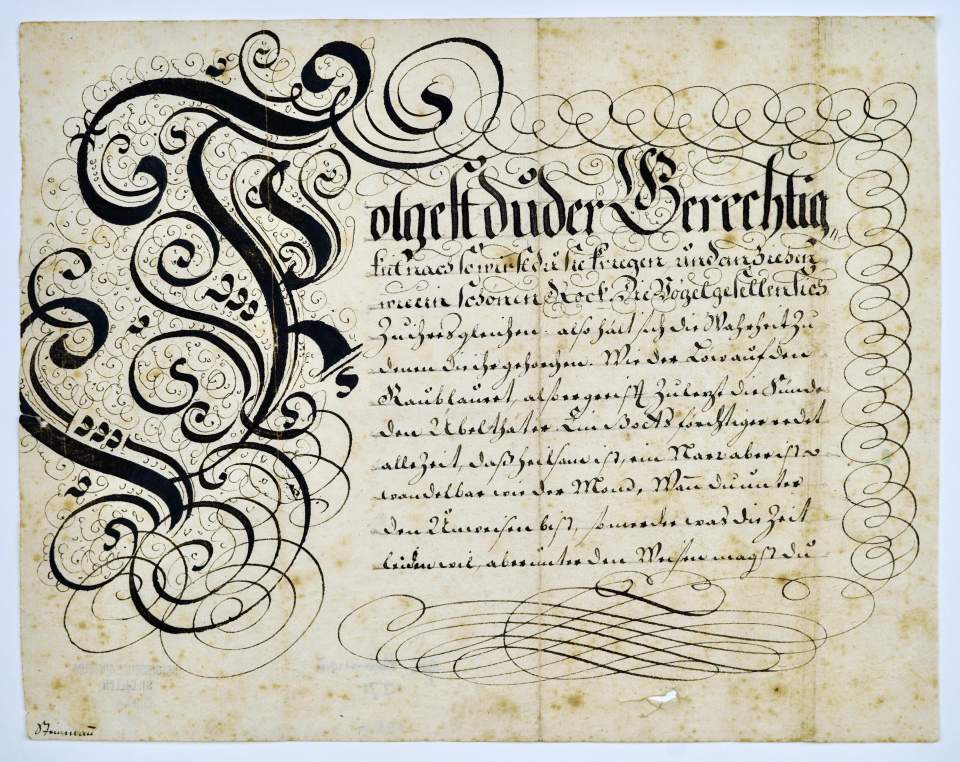 Folgest du der Gerechtig„
keit nach so wirst du sie kriegen und anziehen
wie ein schönen Rock. Die Vögel gesellen sich
Zu ihres gleichen. also hält sich die Wahrheit Zu
denen die ihr gehorchen. Wie der Löw auf den
Raub lauret, also ergreifft Zuletzt die Sünde
den Übelthäter. Ein Gotts förchtiger redet
alle Zeit, daß heilsam ist, ein Narr aber ist
wandelbar wie der Mond, Wañ du unter
den Unweisen bist, so merke was die Zeit
leiden wil, aber unter den Weisen magst du
ST. GALLEN